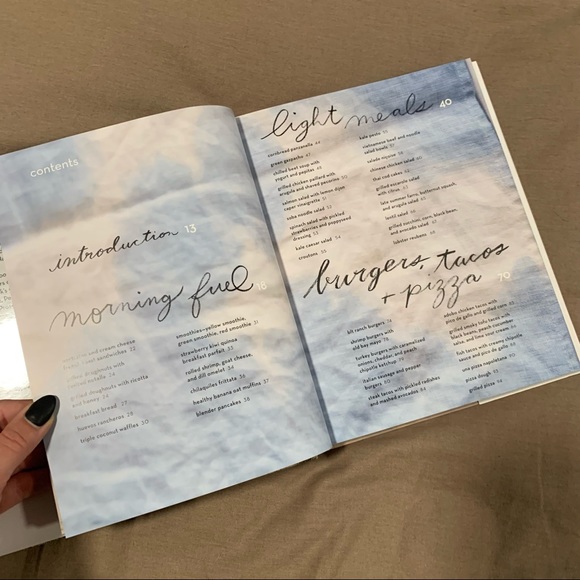 contents
introduction 13
morning fuel 18
cream cheese
sandwiches 22
doughnuts with
nutella 24
grilled doughnuts with ricotta
and honey 24
breakfast bread 27
huevos rancheros
triple coconut waffles 30
smoothies—yellow smoothie,
green smoothie, red smoothie 31
strawberry kiwi quinoa
breakfast parfait
rolled shrimp, goat cheese,
and dill omelet 34
chilaquiles frittata 36
healthy banana oat muffins 37
blender pancakes 38
light meals 40
cornbread panzanella 44
green gazpacho
chilled beet soup with
yogurt and pepitas
grilled chicken paillard with
arugula and shaved pecorino 50
salmon salad with lemon dijon
caper vinaigrette 51
soba noodle salad 52
spinach salad with pickled
strawberries and poppyseed
dressing 53
kale caesar salad 54
croutons 55
kale pesto
vietnamese beef and noodle
salad bowls
salade niçoise
chinese chicken salad
thai cod cakes
grilled escarole salad
with citrus
late summer farro, butternut squash,
and arugula salad
lentil salad
grilled zucchini, corn, black bean,
and avocado salad
lobster reubens
burgers, tacos
+ pizza 70
blt ranch burgers 74
shrimp burgers with
old bay mayo 78
turkey burgers with caramelized
onion, cheddar, and peach
chipotle ketchup
italian sausage and pepper
burgers
steak tacos with pickled radishes
and mashed avocados 84
adobo chicken tacos with
pico de gallo and grilled corn 85
grilled smoky tofu tacos with
black beans, peach-cucumber
salsa, and lime sour cream
fish tacos with creamy chipotle
sauce and pico de gallo
una pizza napoletana
pizza dough
grilled pizza